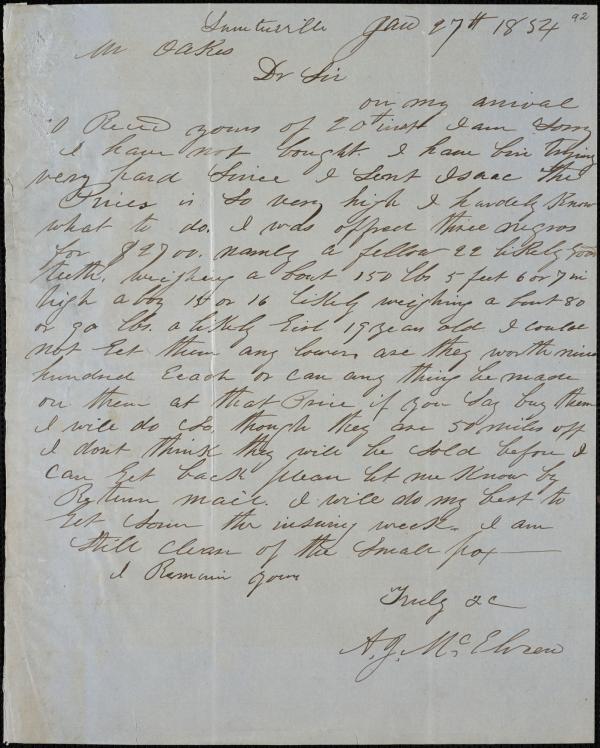 Sumterville Jan 27th 1854
92
Mr Oakes
Dr Sir
on my arival
I Recd yours of 20th inst I am Sorry
I have not bought. I have bin trying
very hard Since I Sent Isaac The
Prices is So very high I hardely Know
what to do. I was offred three negros
for $2700. namely a fellow 22 likely good
teeth. weighing a bout 150 lbs 5 feet 6 or 7 in
high a boy 15 or 16 likely weighing a bout 80
or 90 lbs. a likely Girl 19 years old I could
not Get them any lower. are they worth nine
hundred Each or can any thing be made
on them at that Price if you Say buy them
I will do So. though they are 50 miles off
I dont think they will be Sold before I
can Get back please let me Know by
Return mail. I will do my best to
Get Som the insuing week. I am
Still clear of the Small pox
I Remain yours
Truly &c
A. J. McElveen